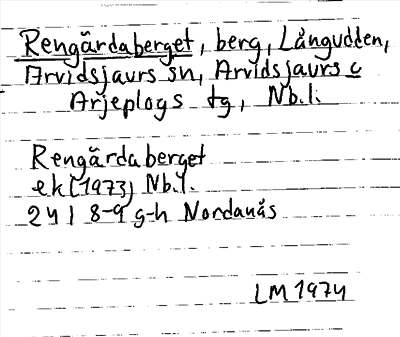 Rengärdaberget, berg, Långudden,
Arvidsjaurs sn, Arvidsjaurs o
Arjeplogs tg, Nb.l.
Rengärdaberget
ek (1973) Nb.l.
24 I 8-9 g-h Nordanås
LM 1974